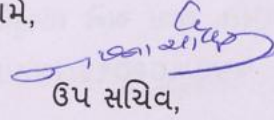 ામે,
ઉપ સચિવ,